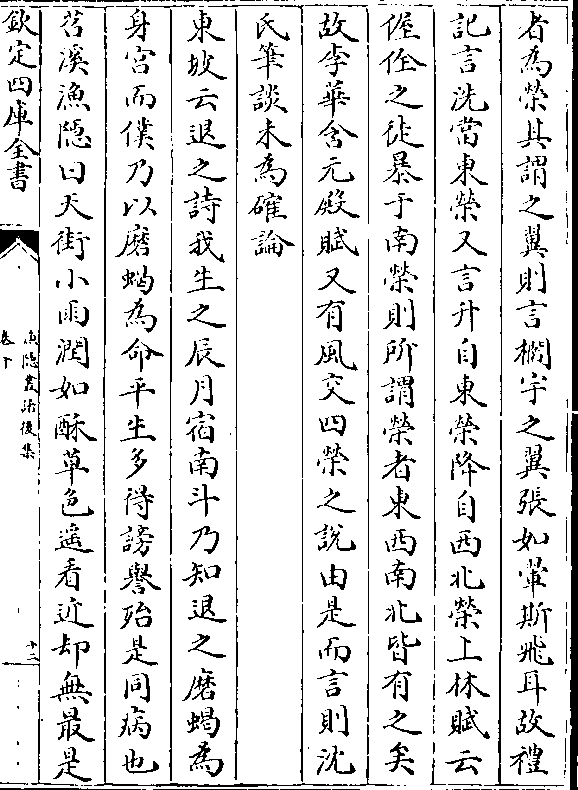 者為榮其謂之翼則言櫩宇之翼張如翬斯飛耳故禮
記言洗當東榮又言升自東榮降自西北榮上林賦云
偓佺之徒暴于南榮則所謂榮者東西南北皆有之矣
故李華含元殿賦又有風交四榮之說由是而言則沈
氏筆談未為確論
東坡云退之詩我生之辰月宿南斗乃知退之磨蝎為
身宮而僕乃以磨蝎為命平生多得謗譽殆是同病也
苕溪漁隠曰天街小雨潤如酥草色遥看近却無最是
欽定四庫全書
漁隠叢話後集
卷十
十二